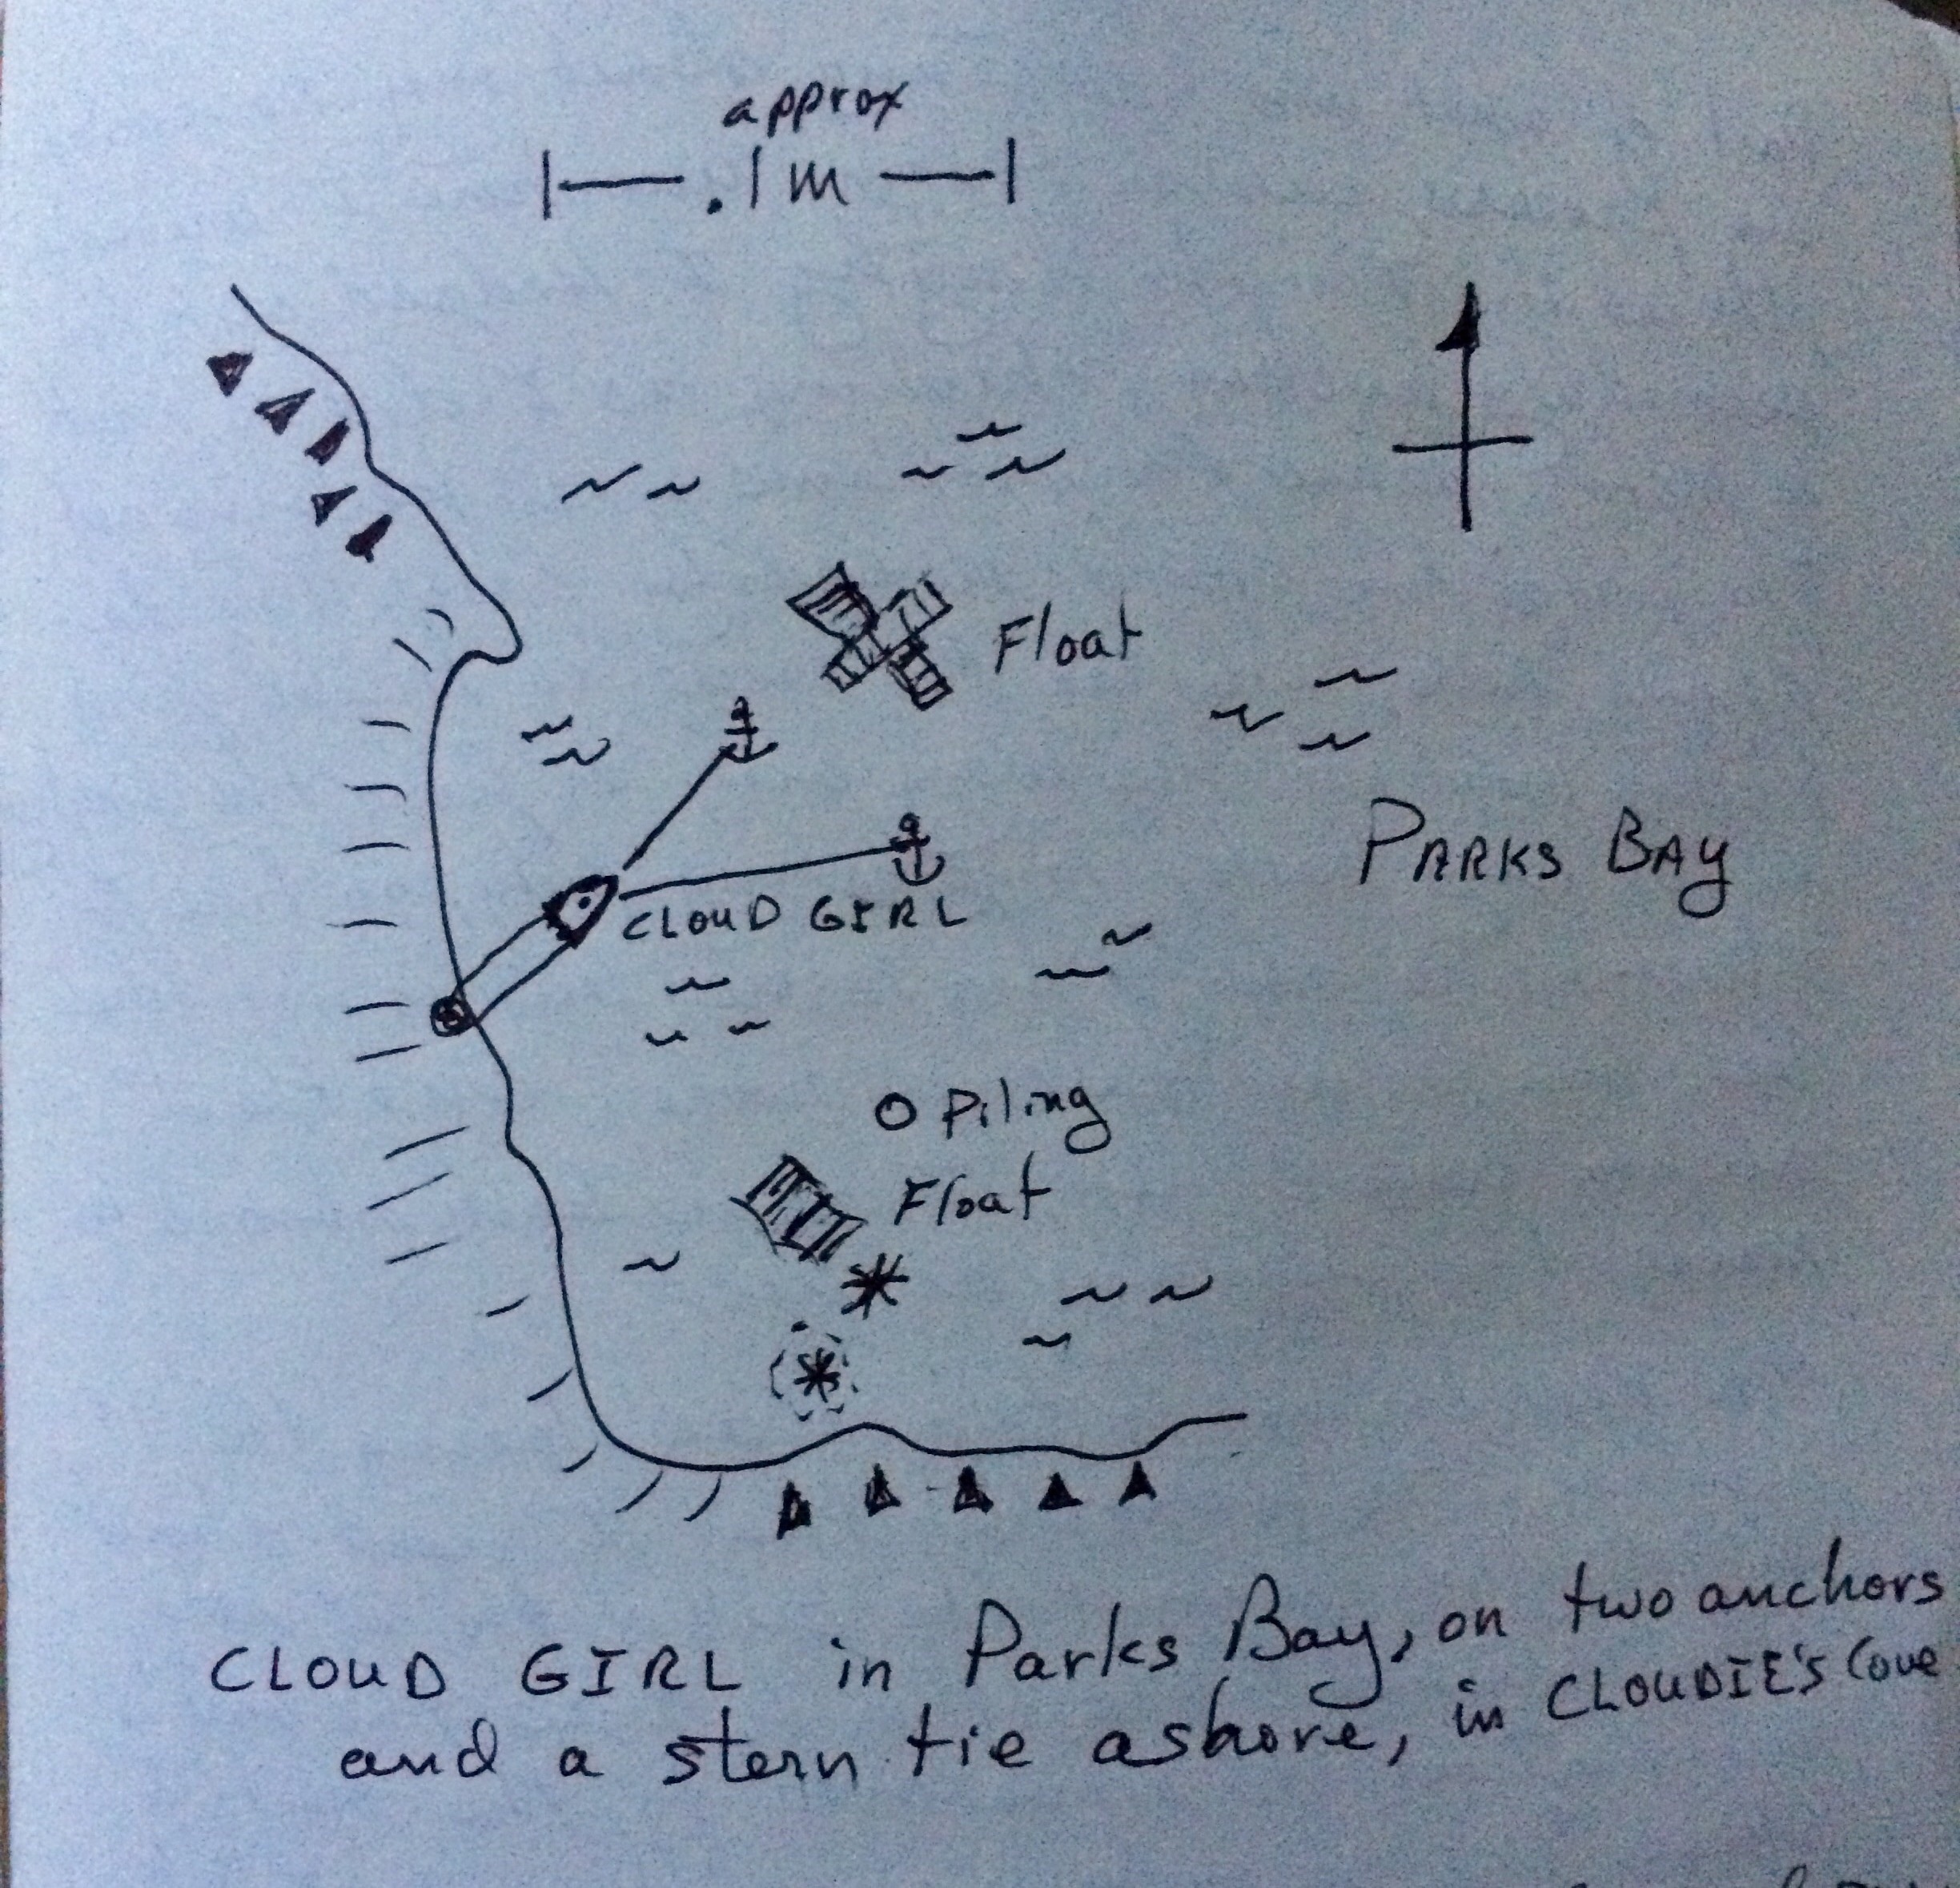 approx
.1m
Float
PARKS BAY
CLOUD GIRL
Piling
Float
CLOUD GIRL in Parks Bay, on two anchors
and a stern tie ashore, in CLOUDIE'S Cove